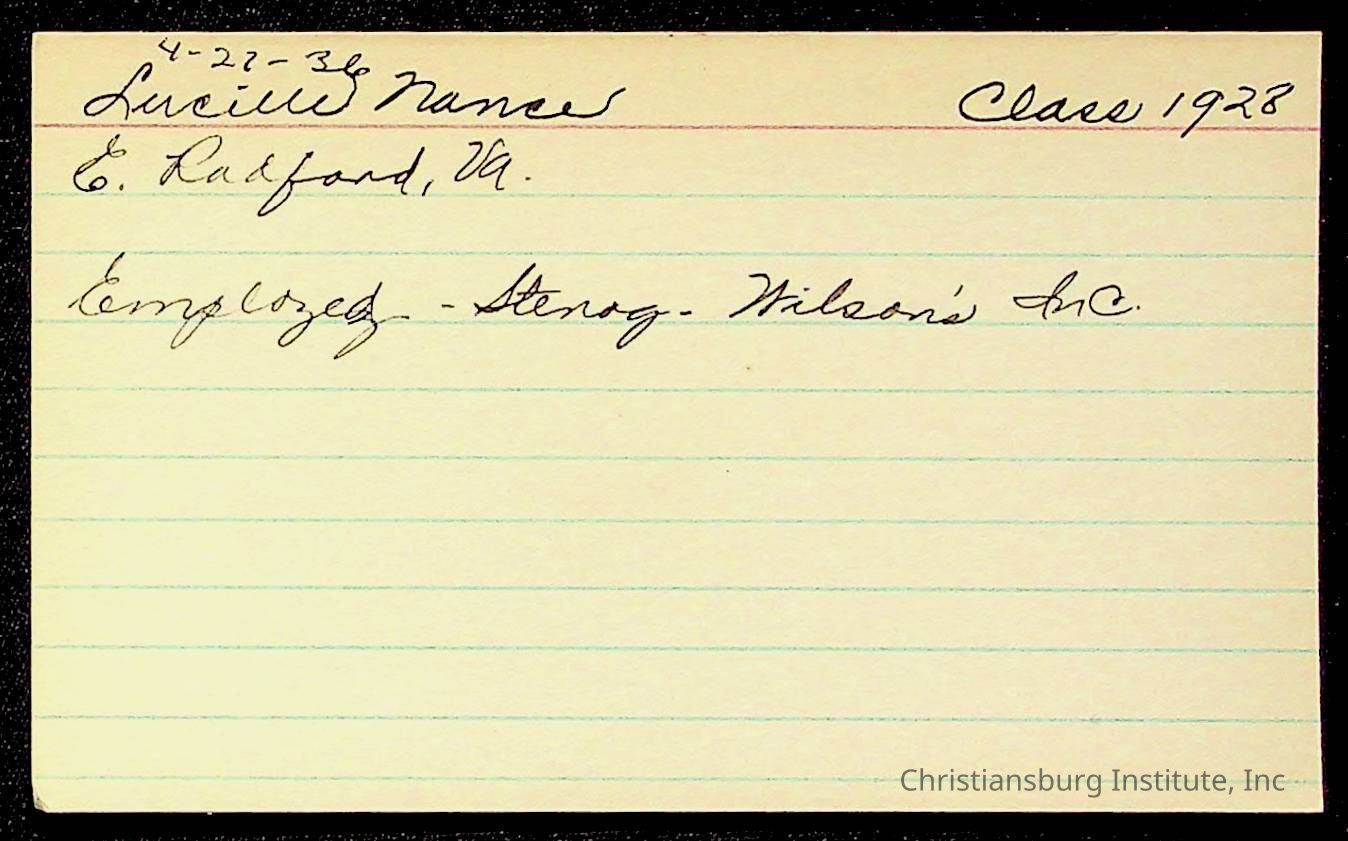 4-27-36
Lucille Nance Class 1928
E. Radford, Va.
Employed - Stenog - Wilson's Inc.
Christiansburg Institute, Inc